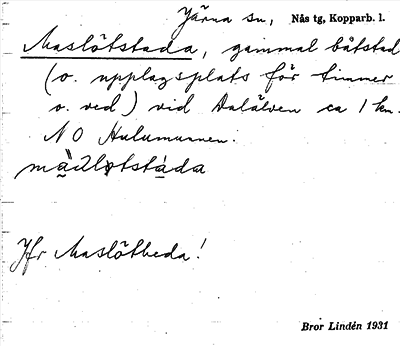 Järna sn, Nås tg, Kopparb. l.
Maslötstada, gammal båtstad
(o. upplagsplats för timmer
o. ved) vid Dalälven ca 1 km.
N O Hulumunnen.
Jfr Maslötbeda!
Bror Lindén 1931